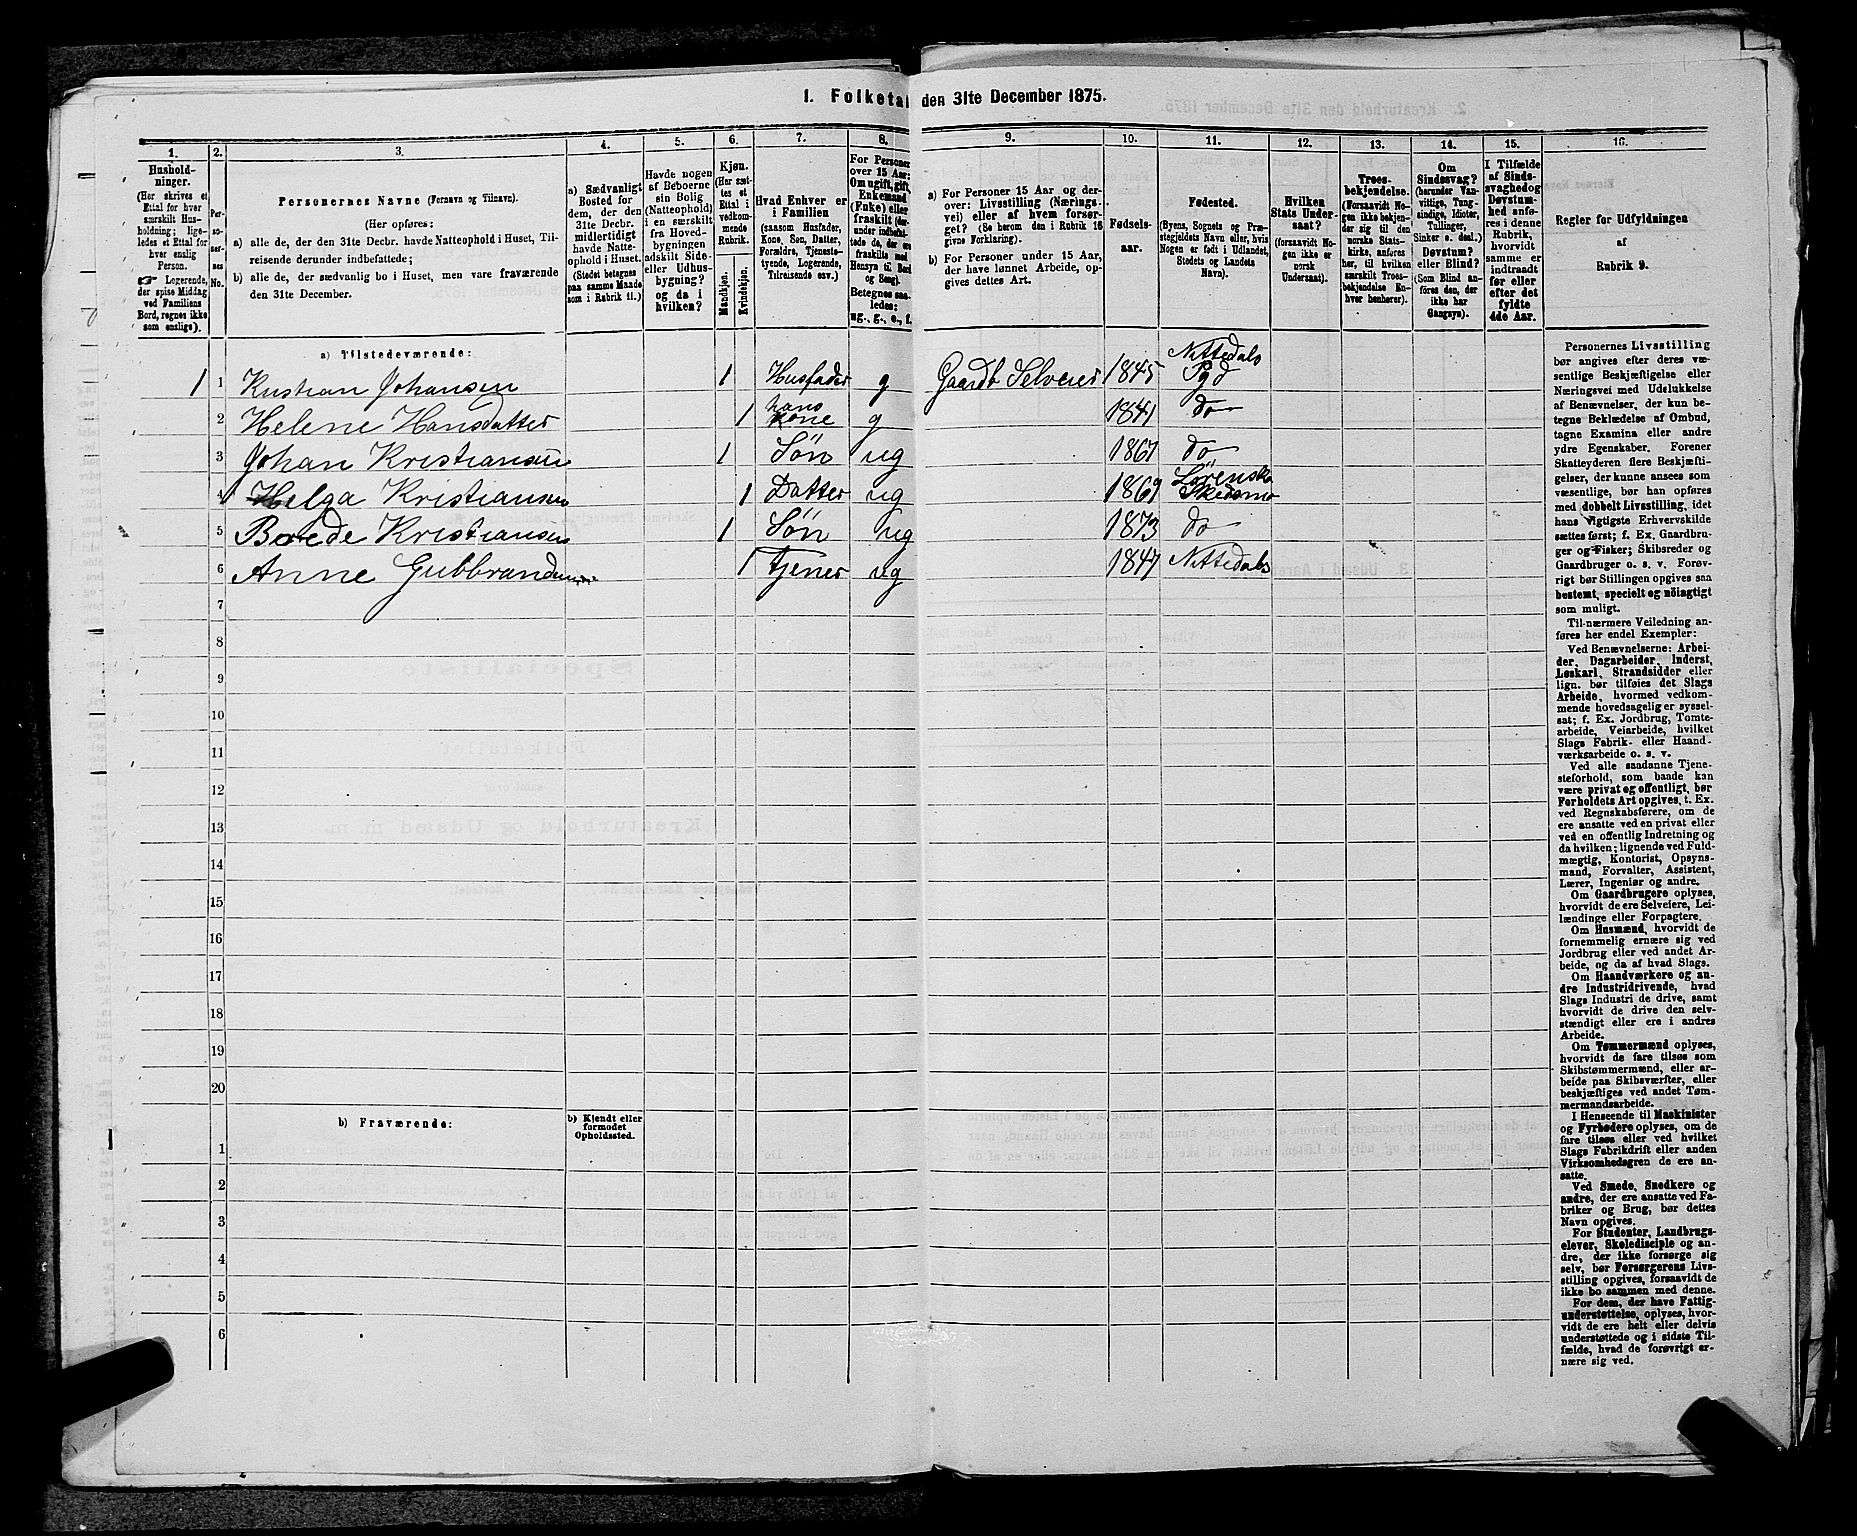 1. Folketal den 31te December 1875.
1.
2.
3.
4.
5.
6.
7.
8.
9.
10.
11.
12.
13.
14.
15.
16.
Hushold-
ninger.
(Her skrives et
Ettal for hver
særskilt Hus-
holdning; lige-
ledes et Ettal for
hver enslig
Person.
Logerende,
der spise Middag
ved Familiens
Bord, regnes ikke
som enslige).
Per-
so-
ner-
nes
No.
Personernes Navne (Fornavn og Tilnavn).
(Her opføres:
a) alle de, der den 31te Decbr. havde Natteophold i Huset, Til-
reisende derunder indbefattede;
b) alle de, der sædvanlig bo i Huset, men vare fraværende
den 31te December.
a) Sædvanligt
Bosted for
dem, der den
31te Decbr.
midlertidigt
havde Natte-
ophold i Huset.
(Stedet betegnes
paa samme Maade
som i Rubrik 11.)
Havde nogen
af Beboerne
sin Bolig
(Natteophold)
i en særskilt
fra Hoved-
bygningen
adskilt Side-
eller Udhus-
bygning?
og da i
hvilken?
Kjøn.
(Her sæt-
tes et
Ettal i
vedkom-
mende
Rubrik.
Mandkjøn.
Kvindekjøn.
Hvad Enhver er
i Familien
(saasom Husfader,
Kone, Søn, Datter,
Forældre, Tjeneste-
tyende, Logerende,
Tilreisende osv.)
For Personer
over 15 Aar:
Om ugift, gift,
Enkemand
(Enke) eller
fraskilt
Betegnes saa-
ledes:
ug., g., e., f.
a) For Personer 15 Aar og der-
over: Livsstilling (Nærings-
vei) eller af hvem forsør-
get? (Se herom den i Rubrik 16
givne Forklaring).
b) For Personer under 15 Aar,
der have lønnet Arbeide, op-
gives dettes Art.
Fødsels-
aar.
Fødested.
(Byens, Sognets og Præ-
stegjeldets Navn eller, hvis
Nogen er født i Udlandet,
Stedets og Landets
Navn).
Hvilken
Stats Under-
saat?
(forsaavidt No-
gen ikke er
norsk
Undersaat).
Troes-
bekjendelse.
(Forsaavidt No-
gen ikke bekjen-
der sig til den
norske Stats-
kirke, anføres
her, til hvilken
særskilt Troes-
bekjendelse En-
hver henhører).
Om
Sindssvag?
(herunder Van-
vittige, Tung-
sindige, Idioter,
Tullinger,
Sinker o. desl.)
Døvstum?
eller Blind?
(Som Blind an-
føres den, der
ikke har
Gangsyn).
I Tilfælde
af Sinds-
svaghed og
Døvstum-
hed anfø-
res i denne
Rubrik,
hvorvidt
samme er
indtraadt
før eller
efter det
fyldte
4de Aar.
Regler for Udfyldningen
af
Rubrik 9.
a) Tilstedeværende:
1 1 Kristian Johansen 1 Husfader g Gaardb Selveier 1845 Nittedals Pgd
2 Helene Hansdatter 1 hans Kone g 1841 do
3 Johan Kristiansen 1 Søn ug 1867 do
4 Helga Kristiansen 1 Datter ug 1869 Lørensko Skedsmo
5 Barede Kristiansen 1 Søn ug 1873 do
6 Anne 1 Tjener ug 1847 Nittedals
7
8
9
10
11
12
13
14
15
16
17
18
19
20
b) Fraværende:
b) Kjendt eller
formodet
Opholdssted.
1
2
3
4
5
6
Personernes Livsstilling
bør angives efter deres væ-
sentlige Beskjæftigelse eller
Næringsvei med Udelukkelse
af Benævnelser, der kun be-
tegne Beklædelse af Ombud,
tagne Examina eller andre
ydre Egenskaber. Forener
Skatteyderen flere Beskjæfti-
gelser, der kunne ansees som
væsentlige, bør han opføres
med dobbelt Livsstilling, idet
hans vigtigste Erhvervskilde
sættes først; f. Ex. Gaardbru-
ger og Fisker; Skibsreder og
Gaardbruger o. s. v. Forøv-
rigt bør Stillingen opgives saa
bestemt, specielt og nöiagtigt
som muligt.
Til nærmere Veiledning an-
føres her endel Exempler:
Ved Benævnelserne: Arbei-
der, Dagarbeider, Inderst,
Løskarl, Strandsidder eller
lign. bør tilføies det Slags
Arbeide, hvormed vedkom-
mende hovedsagelig er syssel-
sat; f. Ex. Jordbrug, Tomte-
arbeide, Veiarbeide, hvilket
Slags Fabrik- eller Haand-
værksarbeide o. s. v.
Ved alle saadanne Tjene-
steforhold, som baade kan
være privat og offentligt, bør
Forholdets Art opgives, t. Ex.
ved Regnskabsførere, om de
ere ansatte ved en privat eller
ved en offentlig Indretning og
da hvilken; lignende ved Fuld-
mægtig, Kontorist, Opsyns-
mand, Forvalter, Assistent,
Lærer, Ingeniør og andre.
Om Gaardbrugere oplyses,
hvorvidt de ere Selveiere, Lei-
lændinge eller Forpagtere.
Om Husmænd, hvorvidt de
fornemmelig ernære sig ved
Jordbrug eller ved andet Ar-
beide, og da af hvad Slags.
Om Haandværkere og an-
dre Industridrivende, hvad
Slags Industri de drive, samt
hvorvidt de drive den selv-
stændigt eller ere i andres
Arbeide.
Om Tømmermænd oplyses,
hvorvidt de fare tilsøs som
Skibstømmermænd, eller ar-
beide paa Skibsværfter, eller
beskjæftiges ved andet Tøm-
mermandsarbeide.
I Henseende til Maskinister
og Fyrbødere oplyses, om de
fare tilsøs eller ved hvilket
Slags Fabrikdrift eller anden
Virksomhedsgren de ere an-
satte.
Ved Smede, Snedkere og
andre, der ere ansatte ved Fa-
briker og Brug, bør dettes
Navn opgives.
For Studenter, Landbrugs-
elever, Skoledisciple og an-
dre, der ikke forsørge sig
selv, bør Forsørgerens Livs-
stilling opgives, forsaavidt de
ikke bo sammen med denne.
For dem, der have Fattig-
understøttelse, oplyses, hvor-
vidt de ere helt eller delvis
understøttede og i sidste Til-
fælde, hvad de forøvrigt er-
nære sig ved.